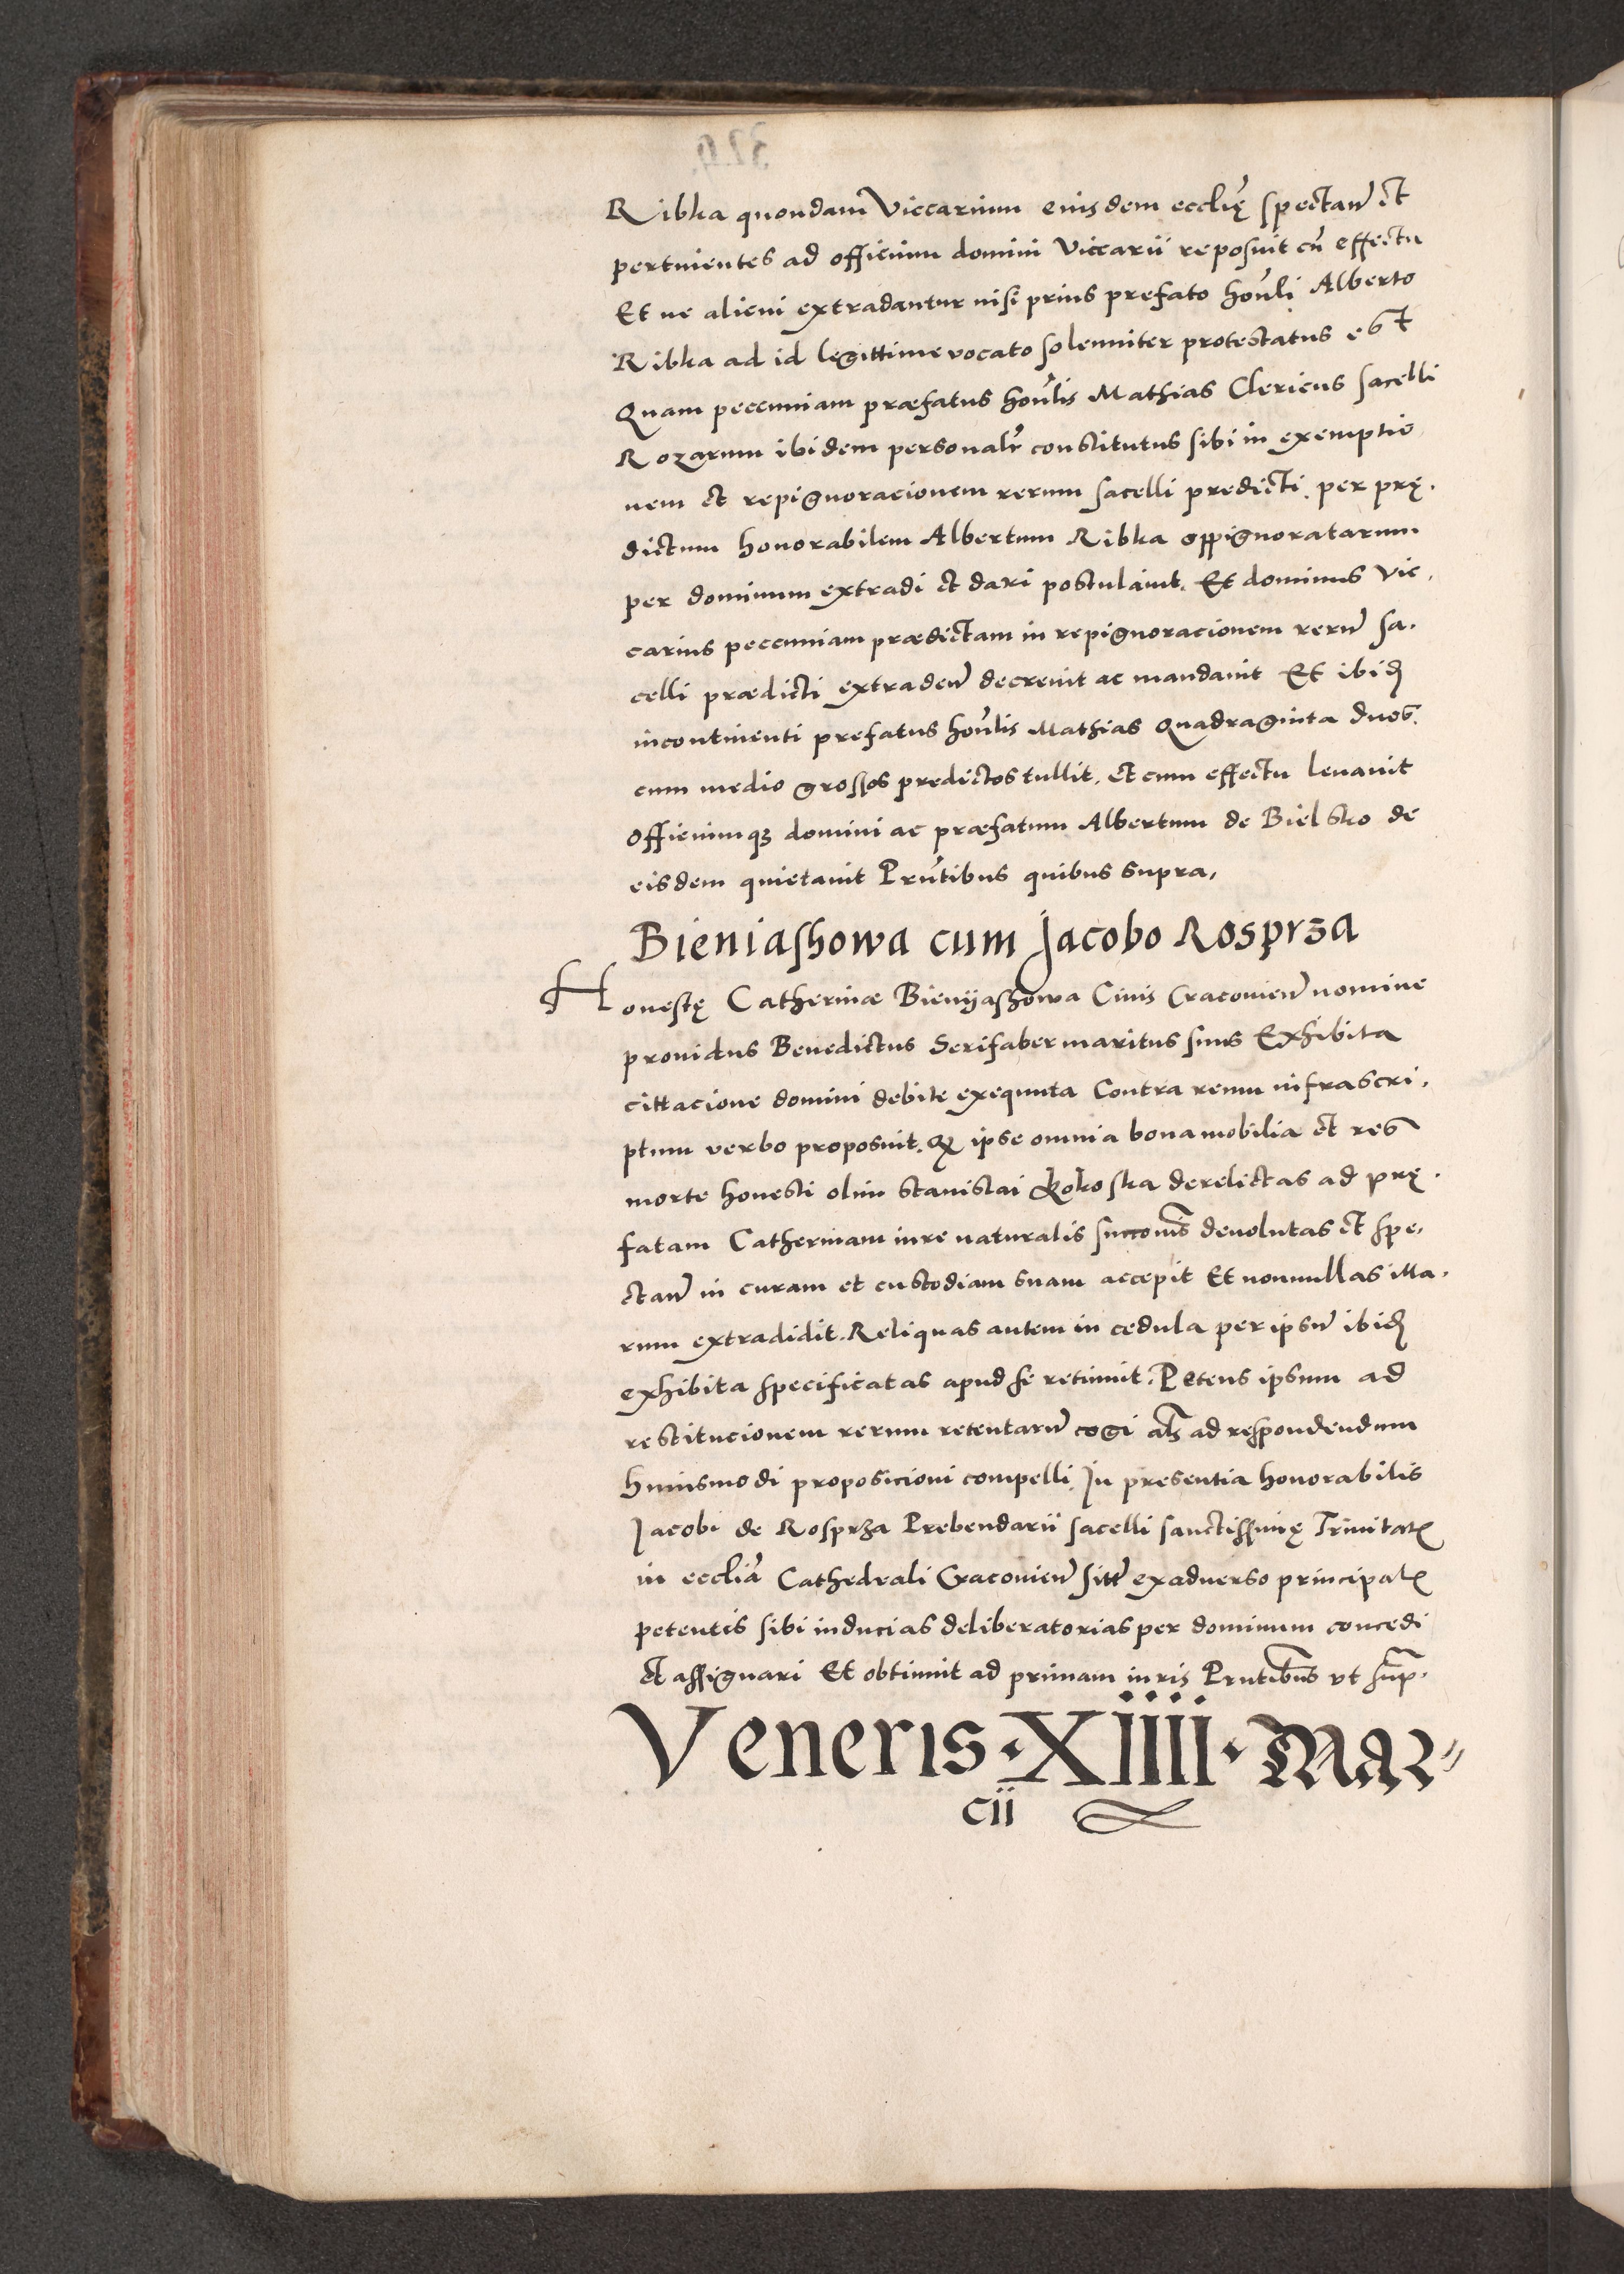 Ribka quondam Viccarium eiusdem ecclię spectan̄ et
pertinentes ad officium domini Viccarii reposuit cū effectu
Et ne alieni extradantur nisi prius prefato honli Alberto
Ribka ad id legittime vocato solenniter protestatus est
Quam peccuniam præfatus honlis Mathias Clericus sacelli
Rozarum ibidem personalr constitutus sibi in exemptio
nem et repignoracionem rerum sacelli predicti. per prę.
dictum honorabilem Albertum Ribka oppignoratarum
per dominum extradi et dari postulauit. Et dominus Vic,
carius peccuniam prædictam in repignoracionem rerū sa.
celli prædicti extraden̄ decreuit ac mandauit Et ibid
incontinenti prefatus honlis Mathias Quadraginta duos
cum medio grossos predictos tullit, et cum effectu leuauit
officiumq₃ domini ac præfatum Albertum de Bielsko de
eisdem quietauit Prntibus quibus supra,
Bieniashowa cum Jacobo Rosprza
Honestę Catherinæ Bienijashowa Ciuis Cracouien̄ nomine
prouidus Benedictus Serifaber maritus suus Exhibita
cittacione domini debite exequuta Contra reum infrascri,
ptum verbo proposuit. Q ipse omnia bona mobilia et res
morte honesti olim Stanislai Kokoska derelictas ad prę.
fatam Catherinam iure naturalis succonis deuolutas et spe,
ctan̄ in curam et custodiam suam accepit Et nonnullas illa.
rum extradidit. Reliquas autem in cedula per ipsū ibid
exhibita specificatas apud se retinuit. Petens ipsum ad
restitucionem rerum retentarū cogi als ad respondendum
huiusmodi proposicioni compelli. In presentia honorabilis
Jacobi de Rosprza Prebendarii sacelli sanctissimę Trinitatꝭ
in ecclia Cathedrali Cracouien̄ sitt exaduerso principalꝭ
petentis sibi inducias deliberatorias per dominum concedi
et assignari Et obtinuit ad primam iuris Prntibus vt sup.
Veneris · XIIII · Mar⸗
cii